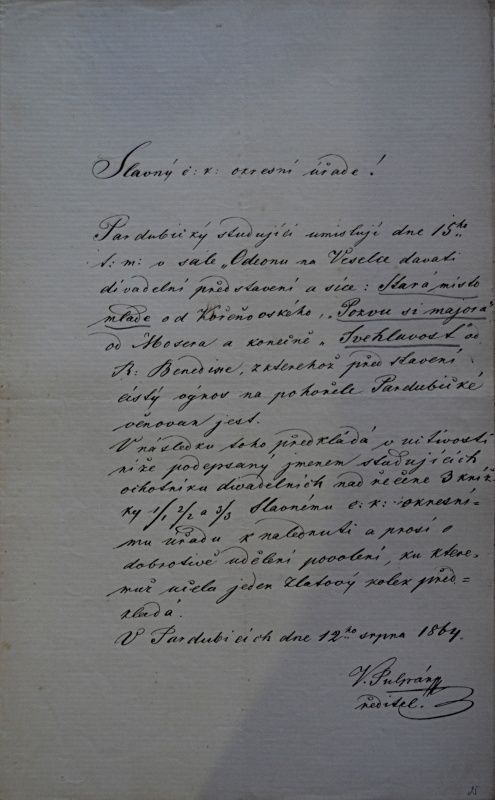 Slavný c: k: okresní úřade!
Pardubický studující umisluje dne 15ho
t: m: v sále „Odeonu na Veselce dávati
divadelní představení a sice: Stará místo
mladé od Kořeňovského, „Pozvu si majora"
od Mosera a konečně „Svéhlavost" od
R: Benedixe, z kterehož představení
čistý výnos na pohořelé Pardubické
věnován jest.
V následku toho předkládá v uctivosti
níže podepsaný jmenem studujících
ochotníku divadelních nadřečené 3 kníž-
ky 1/1 2/2 a 3/3 Slavnému c: k: okresní-
mu úřadu k nalednutí a prosí o
dobrotivé udělení povolení, ku ktere-
muž učelu jeden zlatový kolek před-
kládá.
V Pardubicích dne 12ho srpna 1864.
V.
ředitel.
25